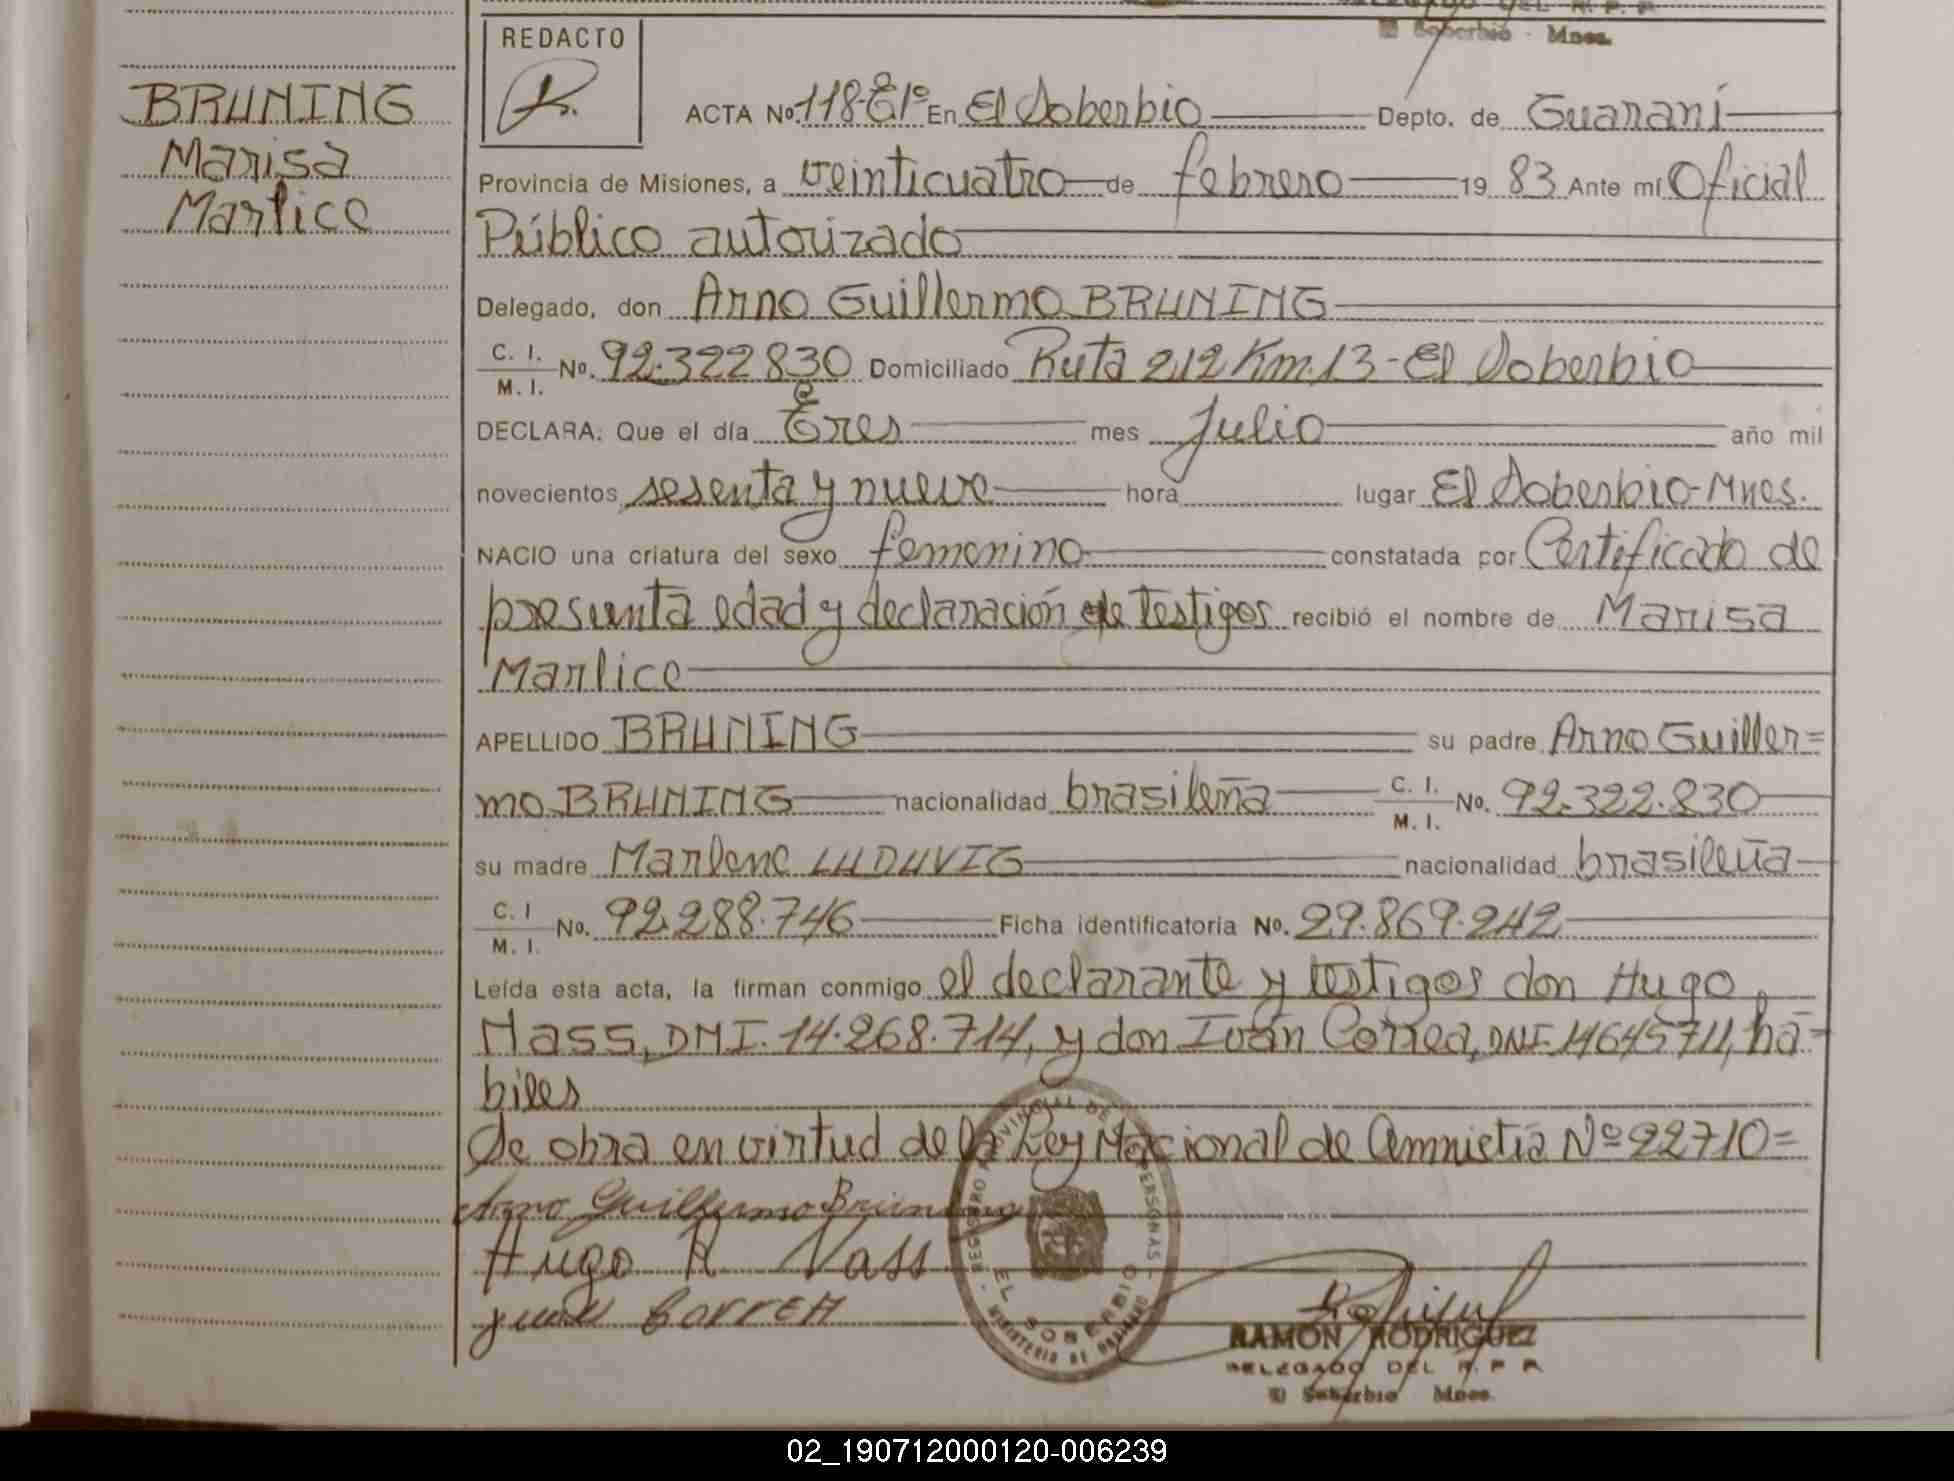 DELEGADO DEL R. P. P
El Soberbio - Mnes.
BRUNING
Marisa
Marlice
REDACTO
ACTA Nº 118-Eº1º En El Soberbio Depto. de Guaraní
Provincia de Misiones, a veinticuatro de febrero 19 83 Ante mí Oficial
Público autorizado
Delegado, don Arno Guillermo BRUNING
C. I. M. I. Nº. 92.322830 Domiciliado Ruta 212 Km.13-El Soberbio
DECLARA: Que el día tres mes Julio año mil
novecientos sesenta y nueve hora lugar El Soberbio-Mnes.
NACIO una criatura del sexo femenino constatada por Certificado de
presunta edad y declaración de testigos recibió el nombre de Marisa
Marlice
APELLIDO BRUNING su padre Arno Guiller=
mo BRUNING nacionalidad brasileña C. I. M. I. Nº. 92.322.830
su madre Marlene LUDUVIG nacionalidad brasileña
C. I M. I. Nº. 92.288.746 Ficha identificatoria Nº. 29.869.242
Leída esta acta, la firman conmigo el declarante y testigos don Hugo
Nass, DNI. 14.268.714, y don Iván Correa, DNI. 14645711, há-
biles
Se obra en virtud de la Ley Nacional de Amnistía Nº 22710=
Arno Guillermo Bruning
Hugo R Nass
Correa
REGISTRO PROVINCIAL DE PERSONAS - MINISTERIO DE GOBIERNO -
EL SOBERBIO
RAMON RODRIGUEZ
DELEGADO DEL R. P. P
El Soberbio Mnes.
02_190712000120-006239